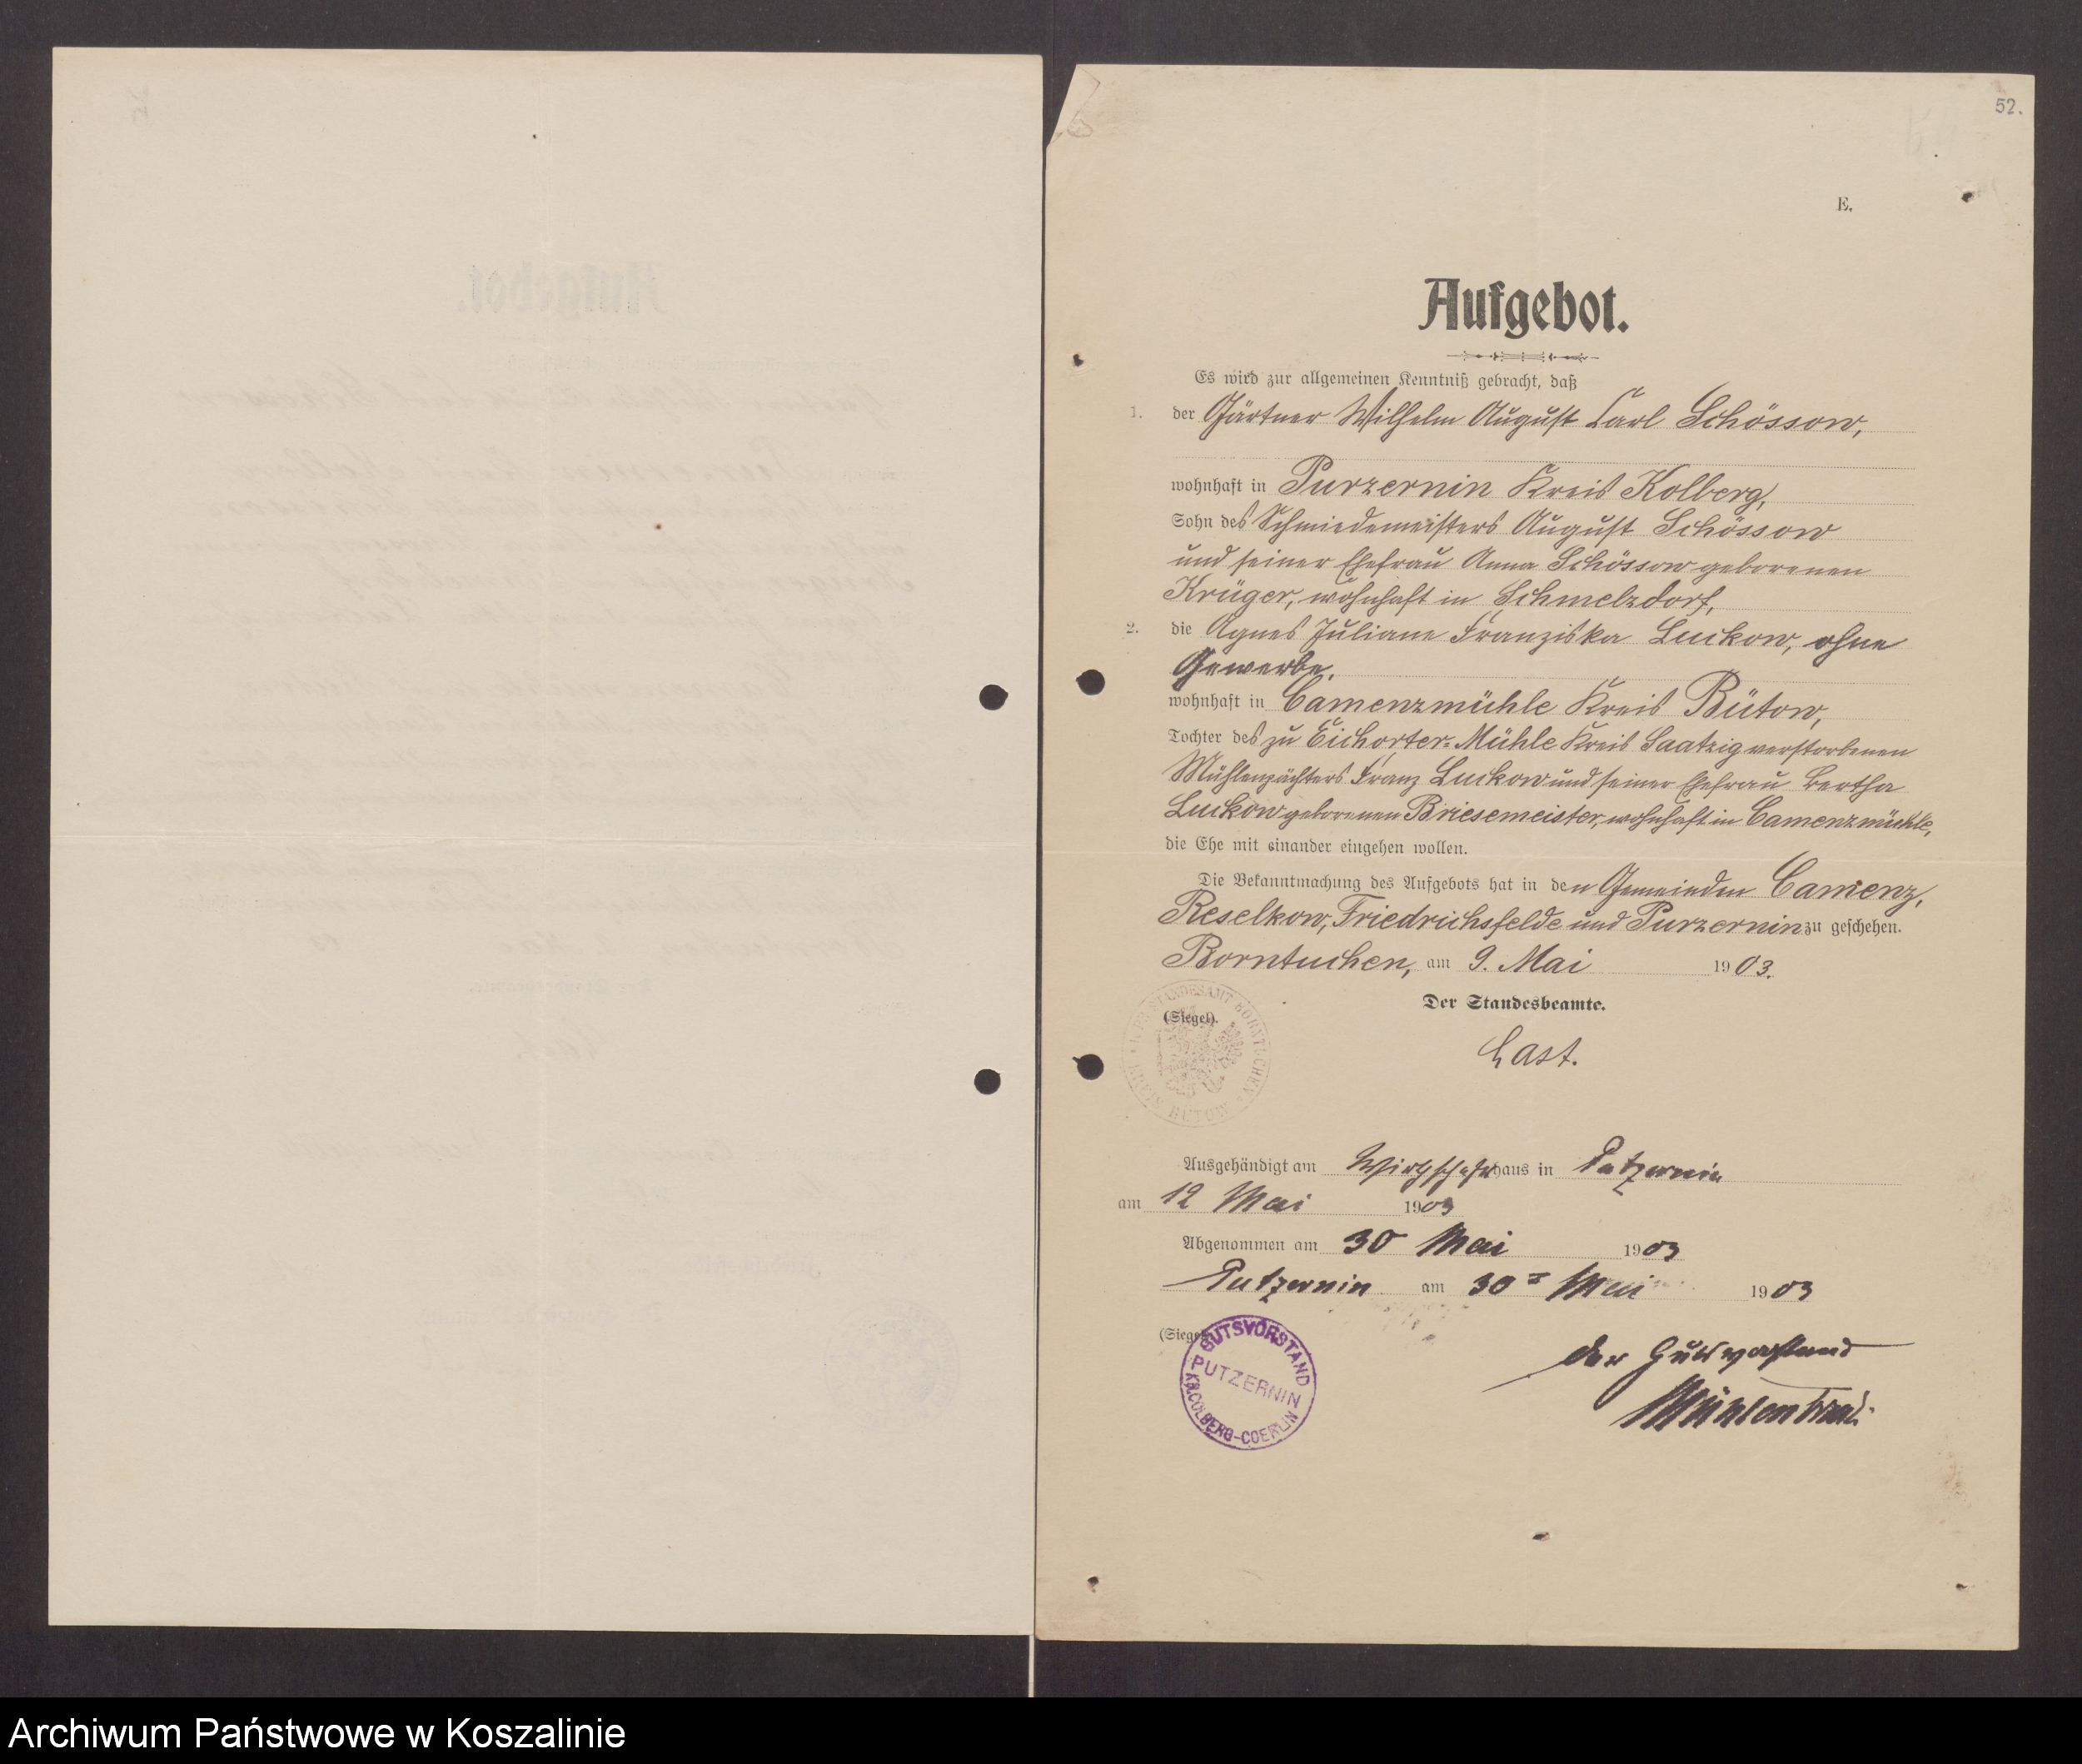 52.
E.
Aufgebot.
Es wird zur allgemeinen Kenntniß gebracht, daß
1. der Gärtner Wilhelm August Carl Schössow,
wohnhaft in Purzernin Kreis Kolberg,
Sohn des Schmiedemeisters August Schössow
und seiner Ehefrau Anna Schössow geborenen
Krüger, wohnhaft in Schmelzdorf,
2. die Agnes Juliane Franziska Luckow, ohne
Gewerbe,
wohnhaft in Camenzmühle Kreis Bütow,
Tochter des zu Eichorter-Mühle Kreis Saatzig verstorbenen
Mühlenpächters Franz Luckow und seiner Ehefrau Bertha
Luckow geborenen Briesemeister, wohnhaft in Camenzmühle,
die Ehe mit einander eingehen wollen.
Die Bekanntmachung des Aufgebots hat in den Gemeinden Camenz,
Reselkow, Friedrichsfelde und Purzernin zu geschehen.
Borntuchen, am 9. Mai 1903.
Der Standesbeamte.
(Siegel).
STANDESAMT BORNTUCHEN
KREIS BÜTOW
Last.
Ausgehändigt am haus in Putzernin
am 12 Mai 1903
Abgenommen am 30 Mai 1903
Putzernin am 30 Mai 1903
(Siegel)
GUTSVORSTAND
PUTZERNIN
KR. COLBERG-COERLIN
Der Gutsvorstand
Archiwum Państwowe w Koszalinie